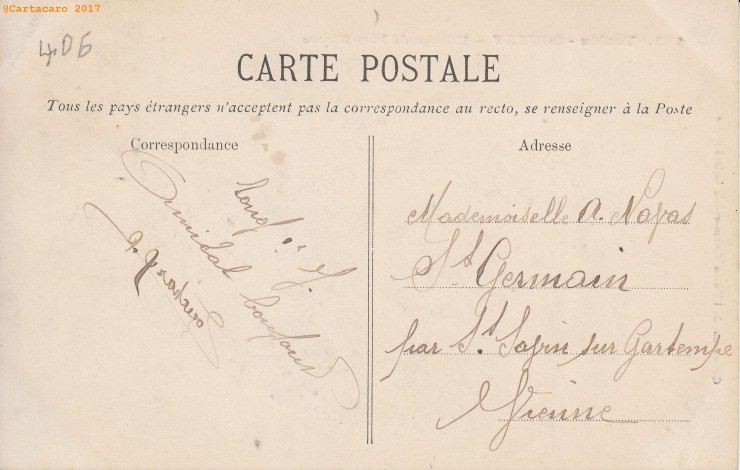 @Cartacaro 2017
4D6
CARTE POSTALE
Tous les pays étrangers n'acceptent pas la correspondance au recto, se renseigner à la Poste
Correspondance
Amical bonjour
Adresse
Mademoiselle A. Napas
St Germain
par St. Savin sur Gartempe
Vienne